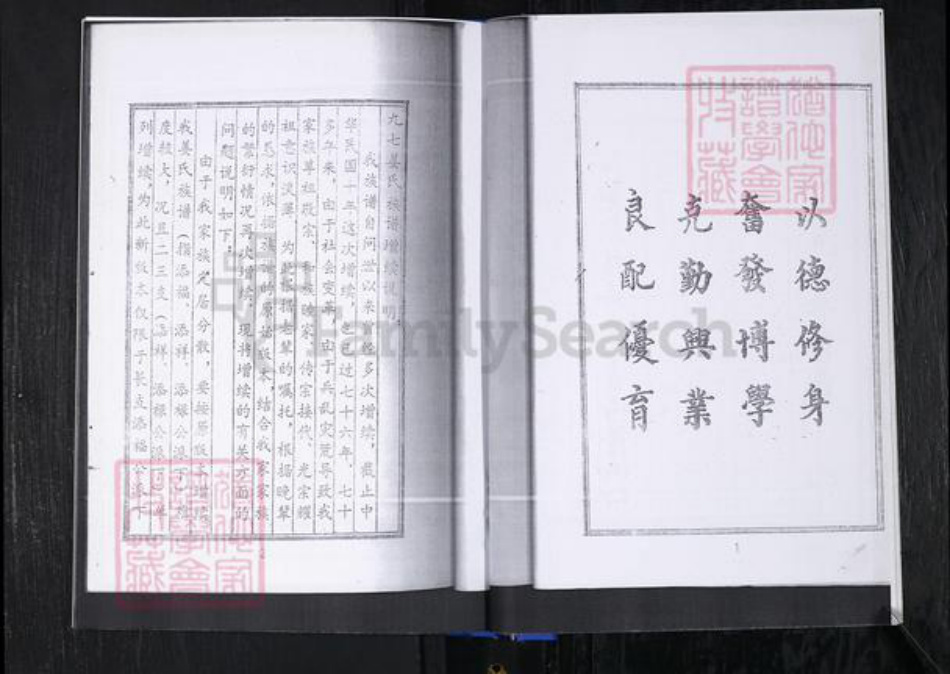 以德修身
奮發博學
克勤興業
良配優育
1
九七姜氏族谱增续说明
我族谱自问世以来曾经多次增续，截止中
华民国十年这次增续，已经过七十六年，七十
多年来，由于社会变革，由于兵乱灾荒导致我
家族尊祖敬宗、和族睦家、传宗接代、光宗耀
祖意识淡薄，为此根据老辈的嘱托，根据晚辈
的恳求，依据族谱的原始版本，结合我家家族
的繁衍情况再次增续，现将增续的有关方面的
问题说明如下：
由于我家族定居分散，要按原版本增续
我姜氏族谱（指添福、添祥、添禄公派下）难
度较大，况且二三支（添祥、添禄公派下）单
列增续，为此新版本仅限于长支添福公派下
FamilySearch